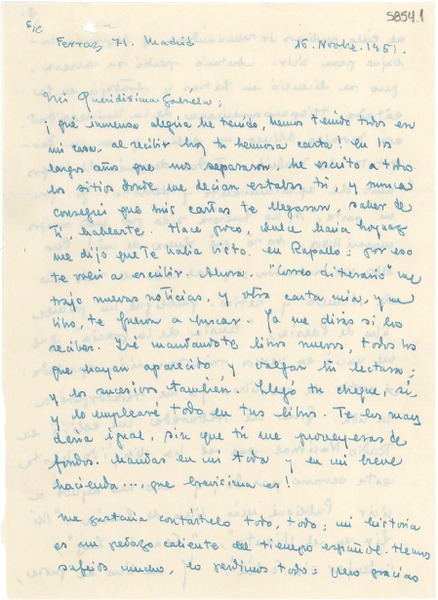 S/C
5854.1
Ferraz 71. Madrid 15. Novbre. 1951.
Mi Queridísima Gabriela;
¡qué inmensa alegría he tenido, hemos tenido todos en
mi casa, al recibir hoy tu hermosa carta! En los
largos años que nos separaron, he escrito a todos
los sitios donde me decían estabas tú, y nunca
conseguí que mis cartas te llegaran, saber de
Ti, hablarte. Hace poco, Dulce María Loynaz
me dijo que te había visto en Rapallo: por eso
te volví a escribir. Ahora, "Correo Literario" me
trajo nuevas noticias, y otra carta mía, y un
libro, te fueron a buscar. Ya me dirás si los
recibes. Iré mandándote libros nuevos, todos los
que hayan aparecido y valgan tu lectura;
y los sucesivos también. Llegó tu cheque, sí
y lo emplearé todo en tus libros. Te los man-
daría igual, sin que tú me proveyeras de
fondos. Mandas en mi toda y en mi breve
hacienda..., que brevísima es!
Me gustaría contártelo todo, todo; mi historia
es un pedazo caliente del tiempo español. Hemos
sufrido mucho, lo perdimos todo: pero gracias